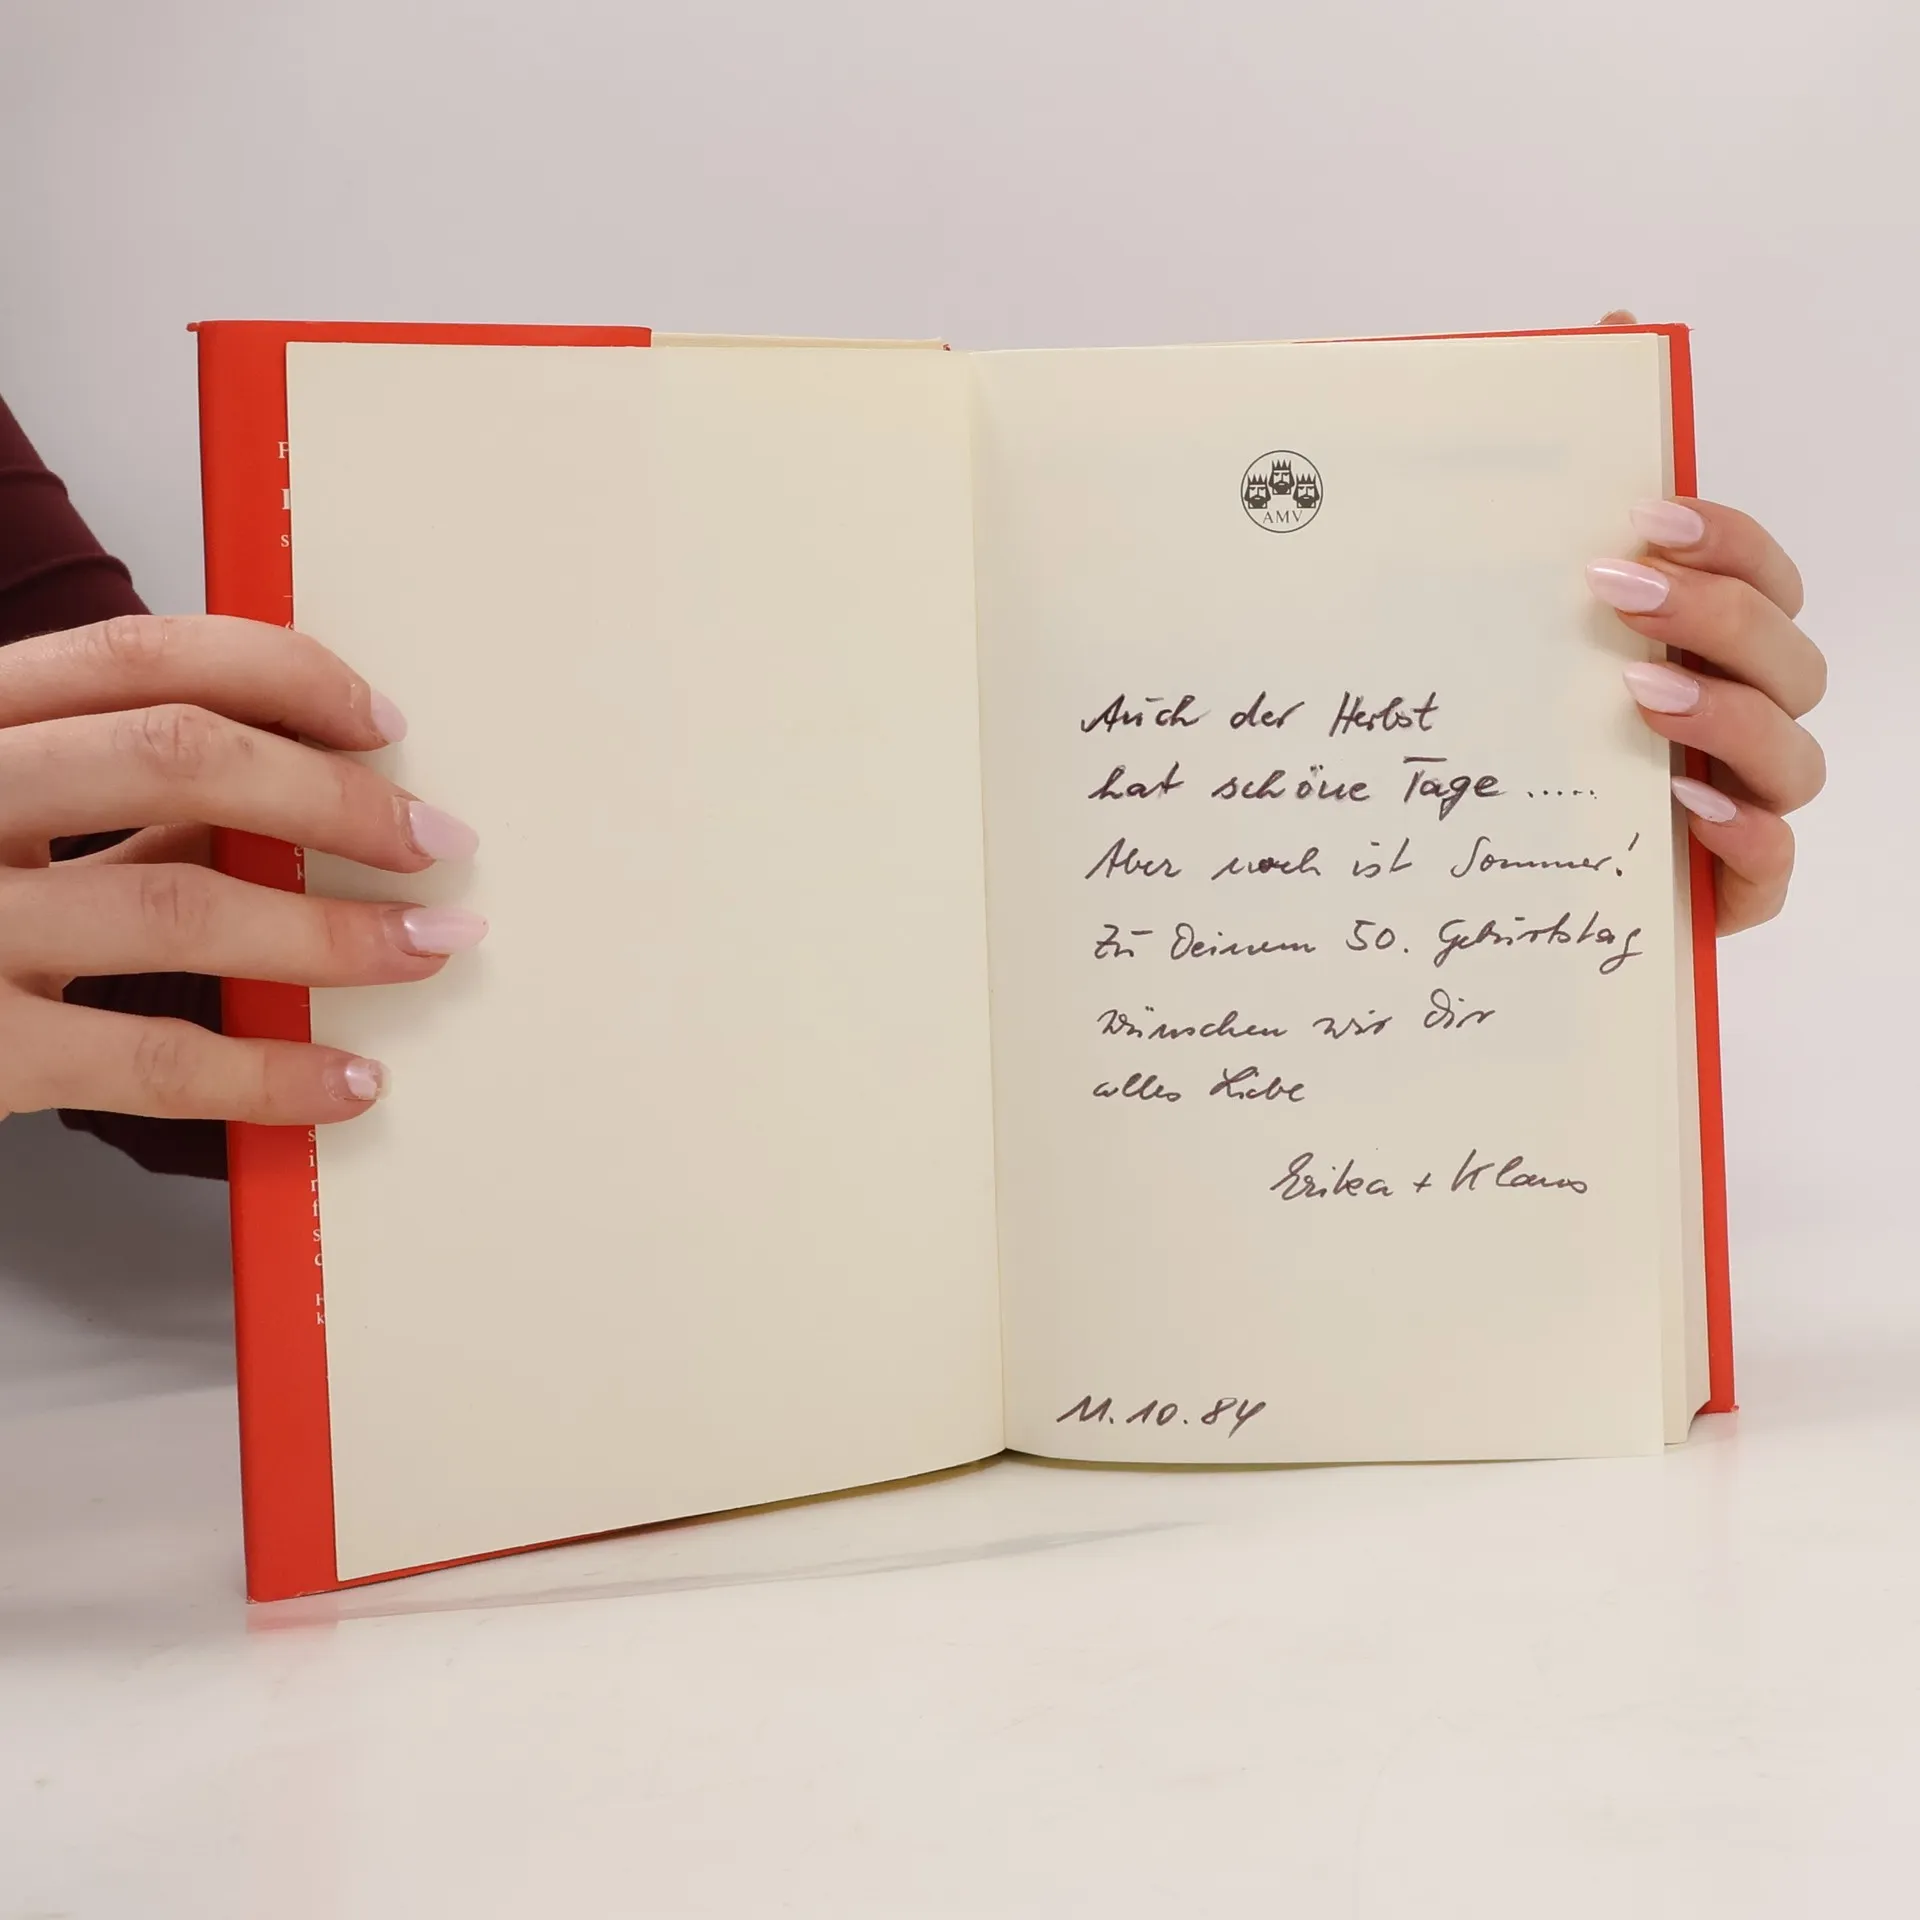 AMV
Auch der Herbst
hat schöne Tage .....
Aber noch ist Sommer!
Zu Deinem 50. Geburtstag
wünschen wir Dir
alles Liebe
Erika + Klaus
11.10.84